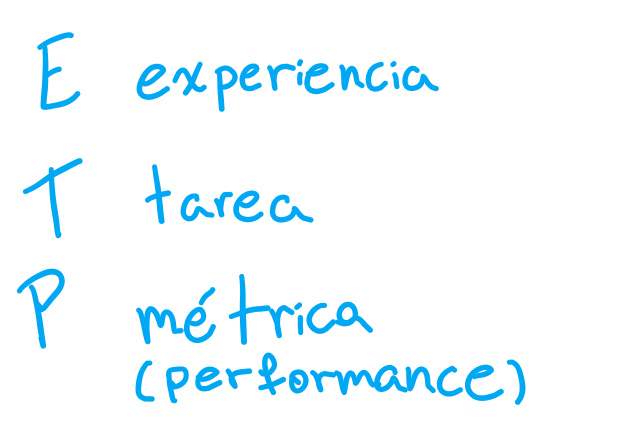 E experiencia
T tarea
P métrica
(performance)